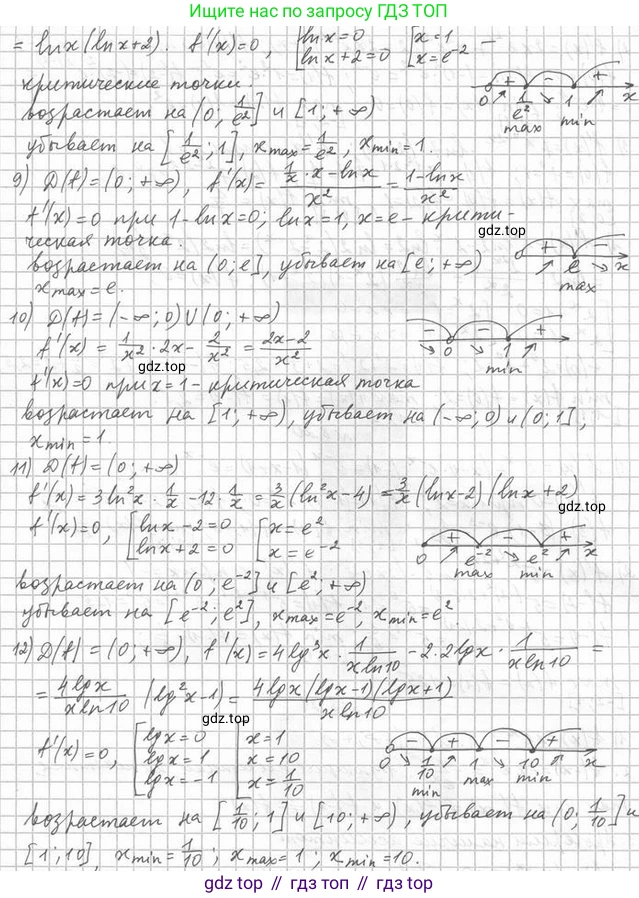 Ищите нас по запросу ГДЗ ТОП
= ln x (ln x + 2). f'(x)=0, [ln x = 0 [x = 1 –
ln x + 2 = 0 x = e⁻²
критические точки.
возрастает на (0; 1/e²] и [1; +∞)
0 + ↗ 1/e² max – ↘ 1 min + ↗ x
убывает на [1/e²; 1], xmax = 1/e², xmin = 1.
9) D(f)=(0; +∞), f'(x) = (1/x · x – ln x)/x² = (1–ln x)/x²
f'(x)=0 при 1–ln x=0; ln x=1, x=e – крити-
ческая точка.
gdz.top
возрастает на (0; e], убывает на [e; +∞)
0 + ↗ e max – ↘ x
xmax = e.
10) D(f)=(–∞; 0)∪(0; +∞)
f'(x) = 1/x² · 2x – 2/x² = (2x–2)/x²
– ↘ 0 – ↘ 1 min + ↗
gdz.top
gdz.top
f'(x)=0 при x=1 – критическая точка
возрастает на [1; +∞), убывает на (–∞; 0) и (0; 1],
xmin = 1
11) D(f)=(0; +∞)
f'(x) = 3ln²x · 1/x – 12 · 1/x = 3/x (ln²x – 4) = 3/x (ln x – 2)(ln x + 2)
gdz.top
f'(x)=0, [ln x – 2 = 0 [x = e²
ln x + 2 = 0 x = e⁻²
0 + ↗ e⁻² max – ↘ e² min + ↗ x
возрастает на (0; e⁻²] и [e²; +∞)
убывает на [e⁻²; e²], xmax = e⁻², xmin = e².
gdz.top
12) D(f)=(0; +∞), f'(x) = 4lg³x · 1/(x ln10) – 2·2lg x · 1/(x ln10) =
= 4lg x/(x ln10) (lg²x – 1) = 4lg x (lg x – 1)(lg x + 1)/(x ln10)
gdz.top
f'(x)=0, [lg x = 0 [x = 1
lg x = 1 x = 10
lg x = –1 x = 1/10
0 – ↘ 1/10 min + ↗ 1 max – ↘ 10 min + ↗ x
возрастает на [1/10; 1] и [10; +∞), убывает на (0; 1/10] и
[1; 10], xmin = 1/10; xmax = 1; xmin = 10.
gdz.top // гдз.топ // gdz.top // гдз.топ